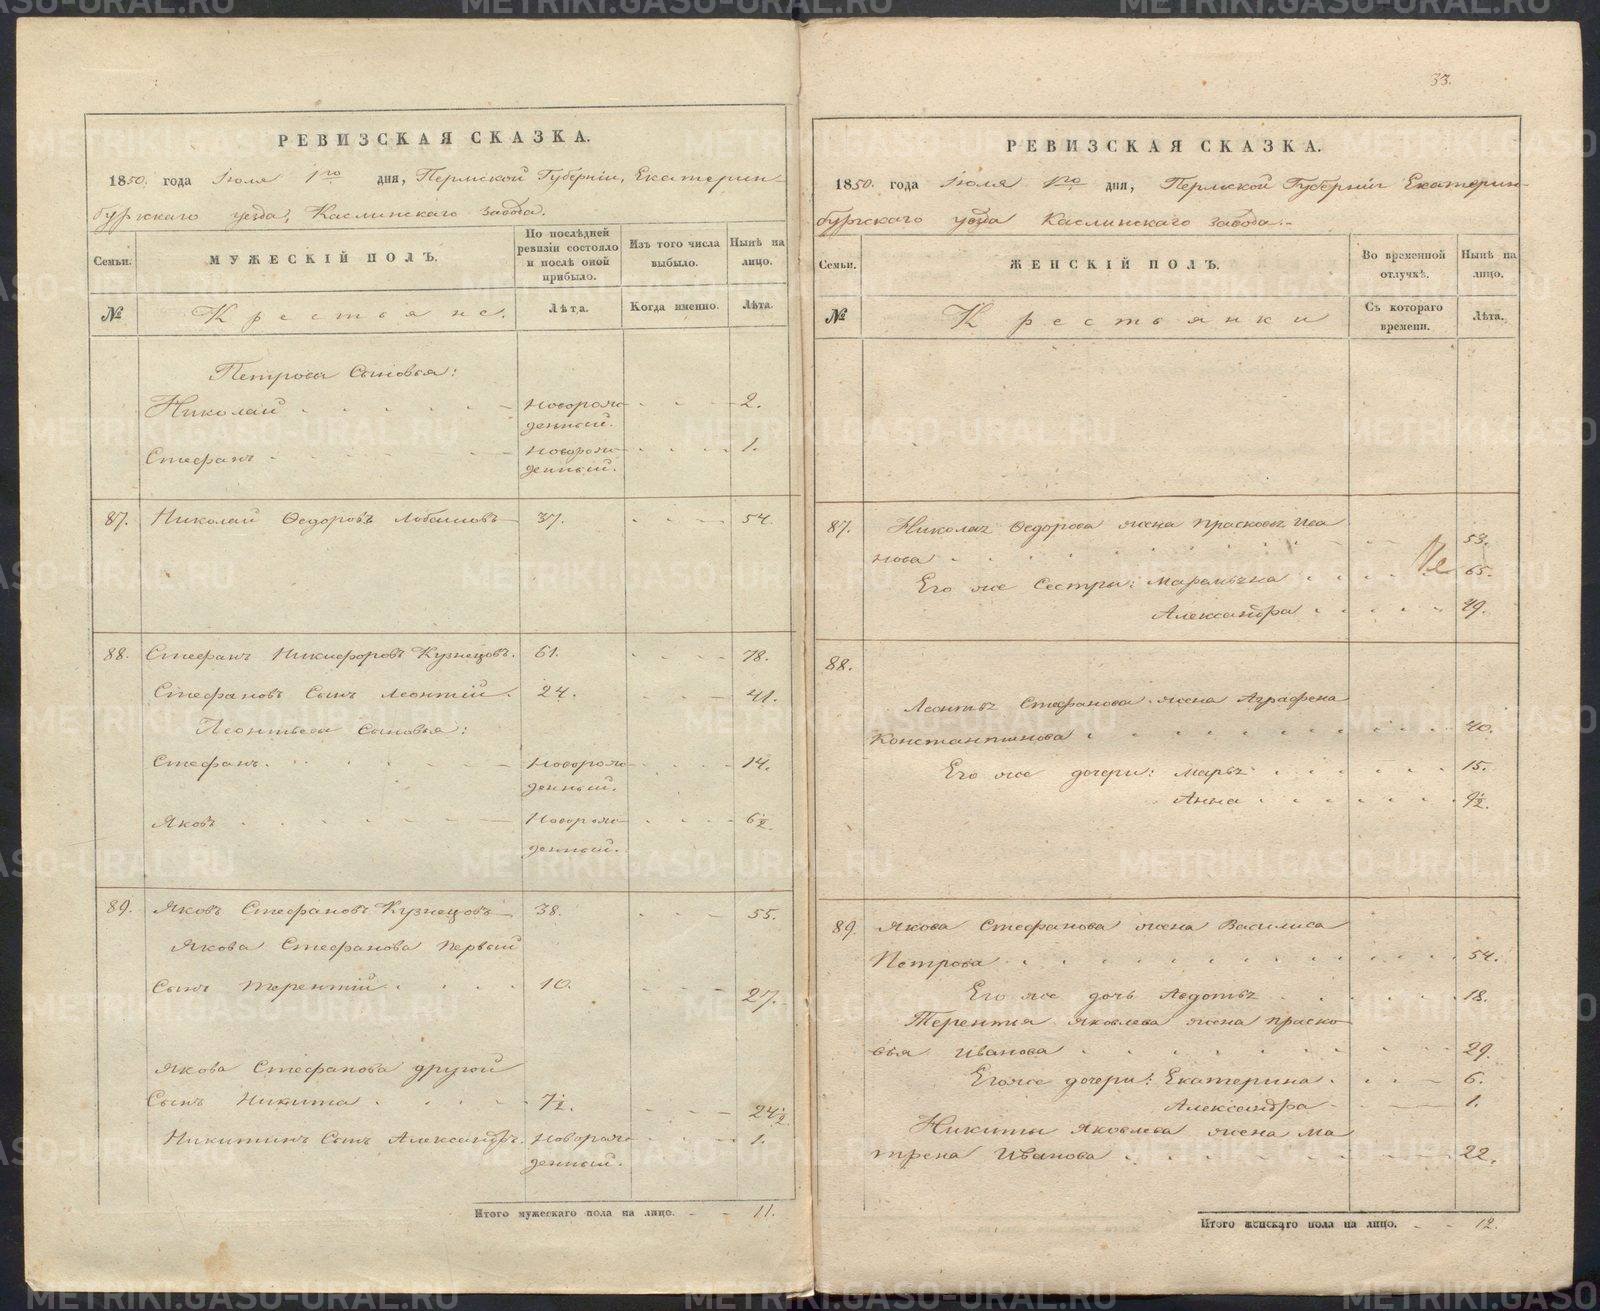 РЕВИЗСКАЯ СКАЗКА.
1850. года Іюля 1го дня, Пермской Губерніи, Екатерин-
бургскаго уезда, Каслинскаго завода.
Семьи.
МУЖЕСКІЙ ПОЛЪ.
По послѣдней ревизіи состояло и послѣ оной прибыло.
Изъ того числа выбыло.
Нынѣ на лицо.
№
Крестьяне.
Лѣта.
Когда именно.
Лѣта.
Петрова Сыновья:
Николай новорож- 2.
денный.
Стефанъ новорож- 1.
денный.
87. Николай Ѳедоровъ Лобановъ 37. 54.
88. Стефанъ Никифоровъ Кузнецовъ. 61. 78.
Стефановъ Сынъ Леонтій. 24. 41.
Леонтьева Сыновья:
Стефанъ. Новорож- 14.
денный.
Яковъ Новорож- 6½.
денный.
89. Яковъ Стефановъ Кузнецовъ 38. 55.
Якова Стефанова первый
Сынъ Терентій 10. 27.
Якова Стефанова другой
Сынъ Никита 7½. 24½
Никитинъ Сынъ Александръ. новорож- 1.
денный.
Итого мужескаго пола на лицо. 11.
33.
РЕВИЗСКАЯ СКАЗКА.
1850. года Іюля 1го дня, Пермской Губерніи Екатерин-
бургскаго уезда Каслинскаго завода.
Семьи.
ЖЕНСКІЙ ПОЛЪ.
Во временной отлучкѣ.
Нынѣ на лицо.
№
Крестьянки
Съ котораго времени.
Лѣта.
87. Николая Ѳедорова жена Прасковья Ива
нова 53.
Его же Сестры: 65.
Александра 49.
88.
Леонтья Стефанова жена Аграфена
Константинова 40.
Его же дочери: Марья 15.
Анна 9½.
89. Якова Стефанова жена Василиса
Петрова 54.
Его же дочь Авдотья 18.
Терентия Яковлева жена Праско-
вья Иванова 29.
Его же дочери: Екатерина. 6.
Александра 1.
Никиты Яковлева жена Ма
трена Иванова 22.
Итого женскаго пола на лицо. 12.
METRIKI.GASO-URAL.RU